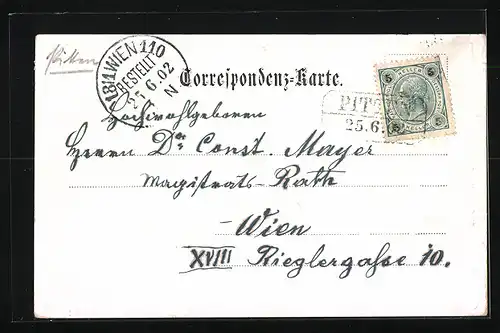 Pitten
18/1 WIEN 110
BESTELLT
25 6.02
N
Correspondenz-Karte.
5 HELLER 5
PIT
25.6.
Hochwohlgeboren
Herrn Dr. Const. Mayer
Magistrats-Rath
Wien
XVIII Rieglergasse 10.